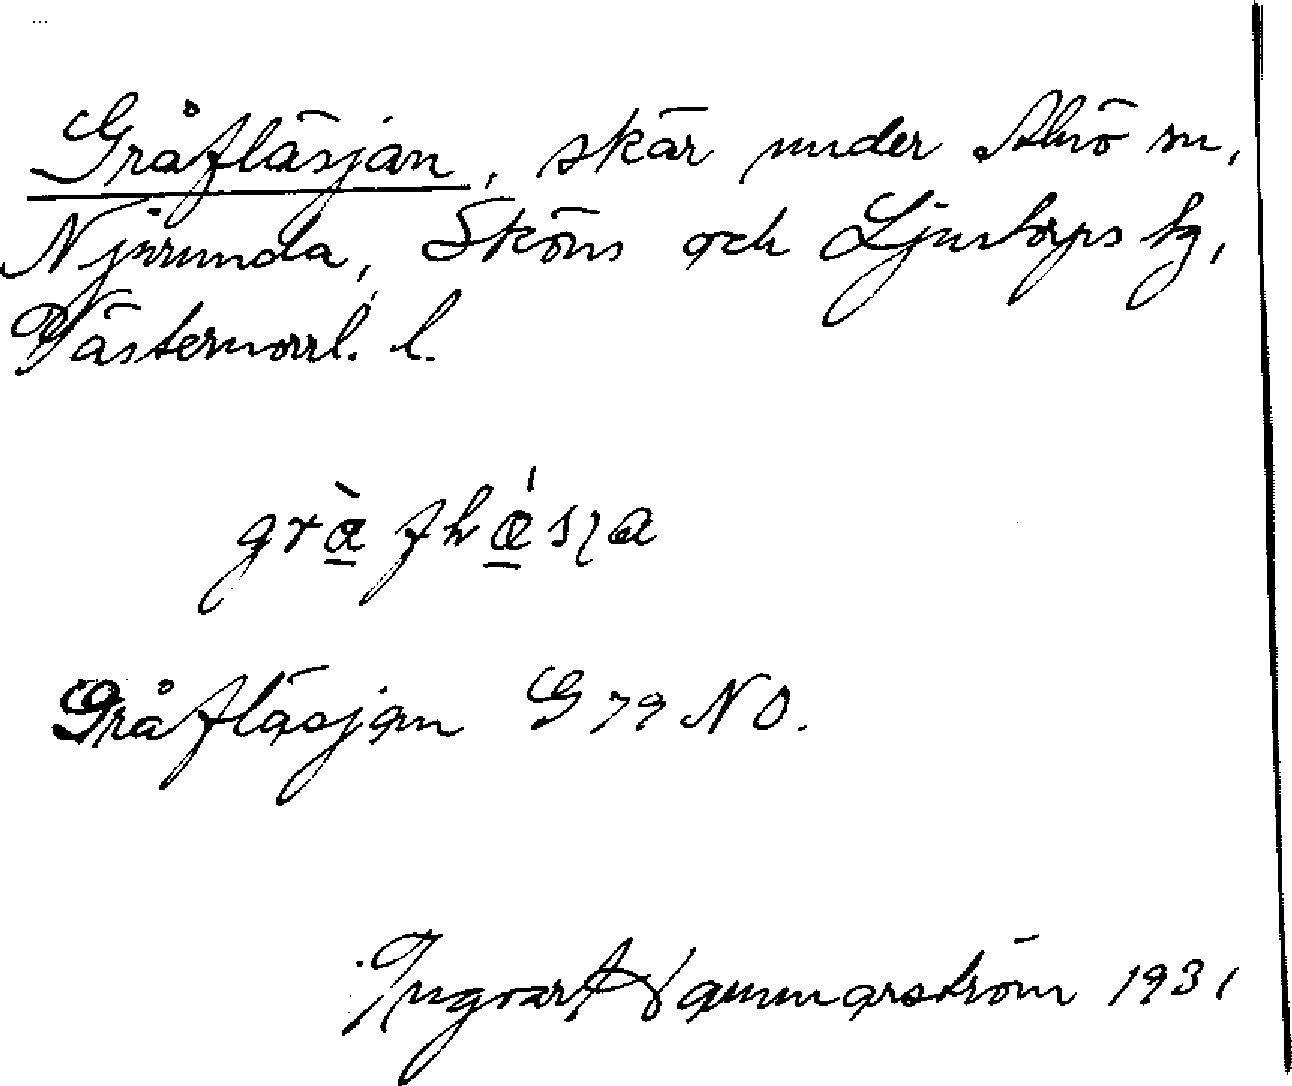 Gråfläsjan, skär under Alnö sn,
Njurunda, Sköns och Ljustorps tg,
Västernorrl. l.
Gråfläsjan G 79 NO.
Ingvar Hammarström 1931